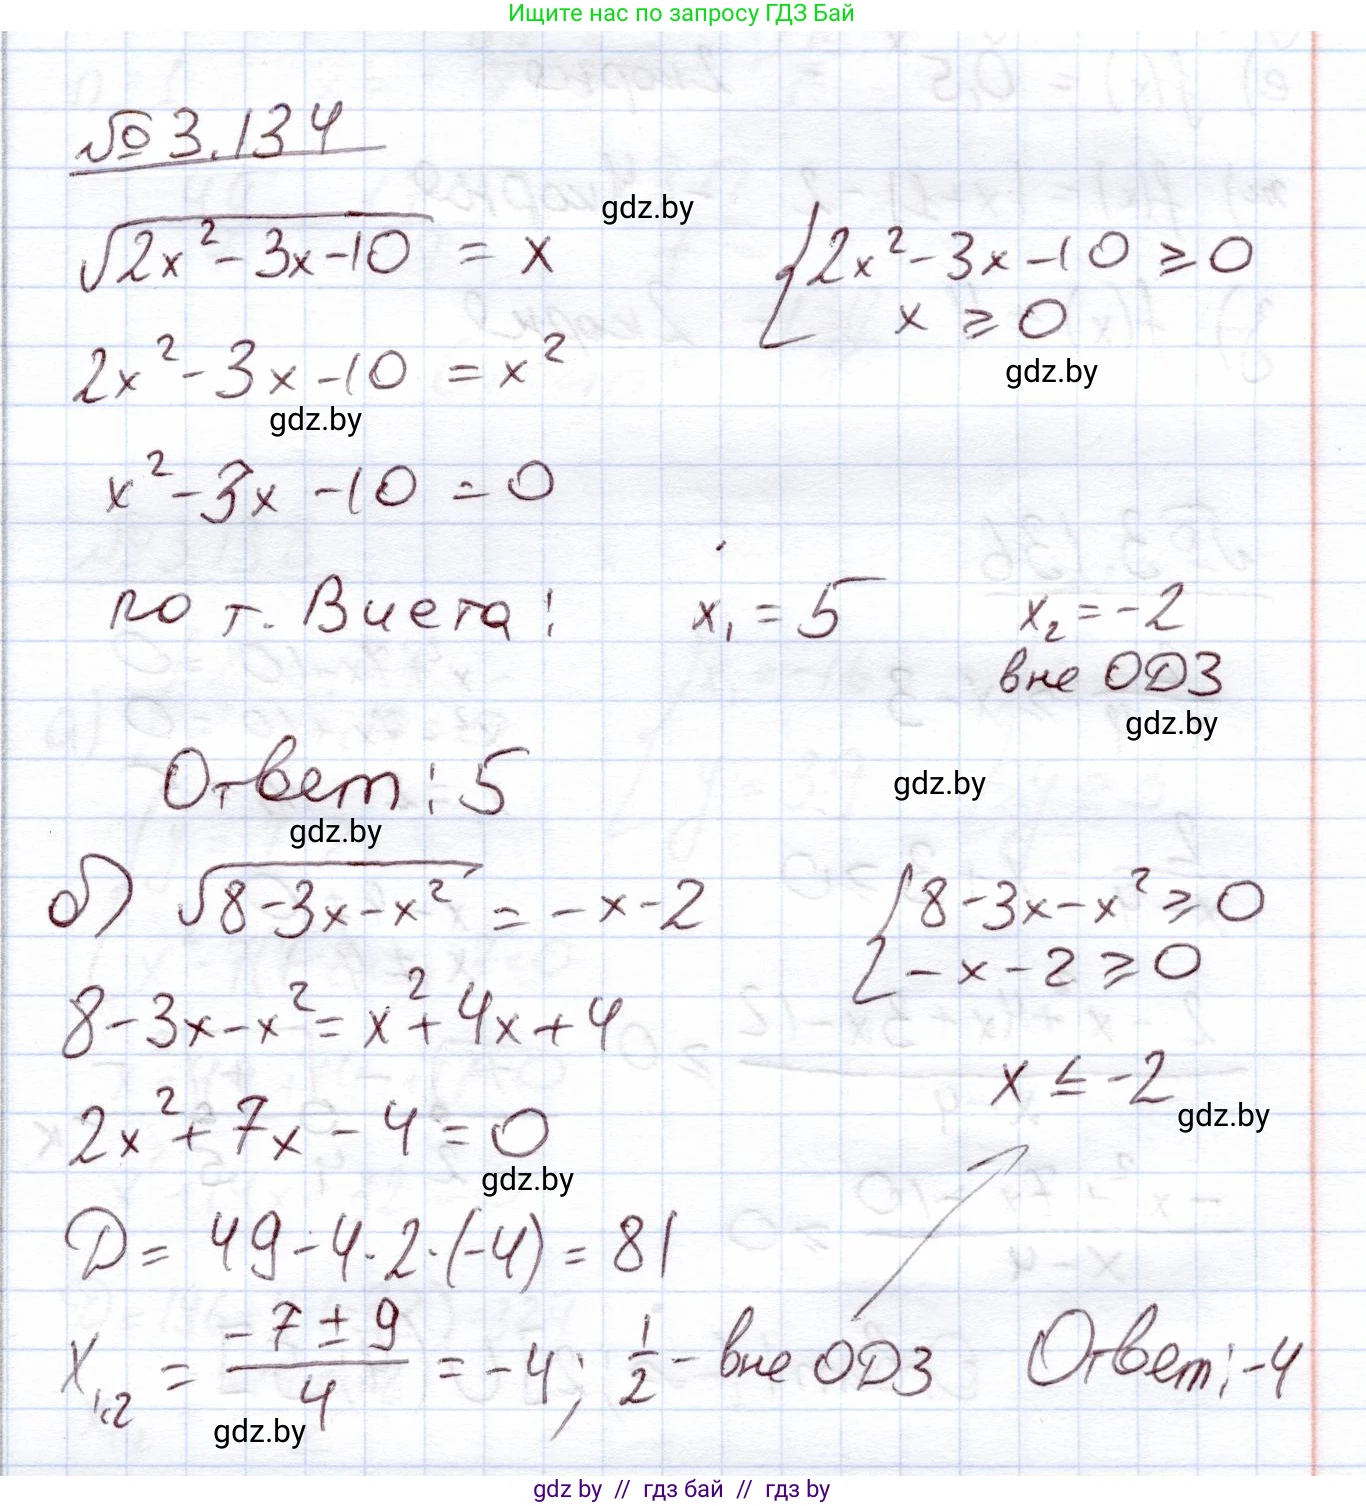 Ищите нас по запросу ГДЗ Бай
№ 3.134
gdz.by
√2x² - 3x - 10 = x
{ 2x² - 3x - 10 ≥ 0
x ≥ 0
gdz.by
2x² - 3x - 10 = x²
gdz.by
x² - 3x - 10 = 0
по т. Виета: x₁ = 5 x₂ = -2
вне ОДЗ
gdz.by
Ответ: 5
gdz.by
gdz.by
б) √8 - 3x - x² = -x - 2
{ 8 - 3x - x² ≥ 0
-x - 2 ≥ 0
8 - 3x - x² = x² + 4x + 4
x ≤ -2
gdz.by
2x² + 7x - 4 = 0
gdz.by
D = 49 - 4·2·(-4) = 81
x₁,₂ = (-7 ± 9)/4 = -4; 1/2 - вне ОДЗ Ответ: -4
gdz.by
gdz by // гдз бай // gdz by